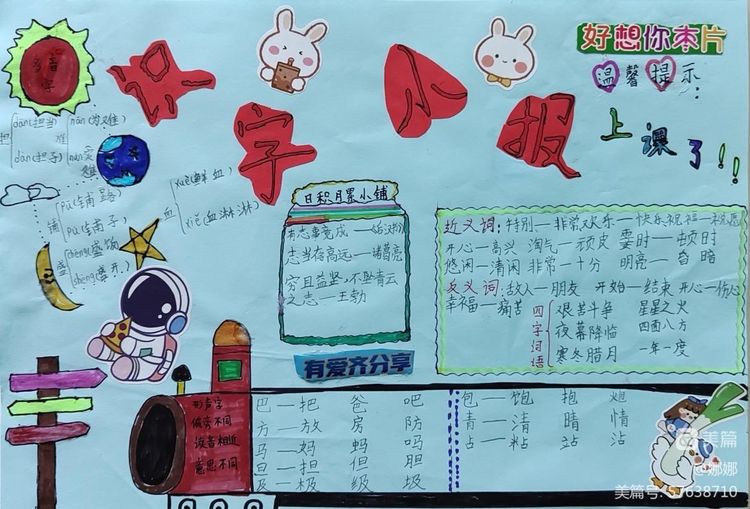 识字小报
好想你本片
温馨提示：
上课了!!!
多音字
担
dān(担当)
dàn(担子)
难
nán(为难)
nàn(灾难)
铺
pū(铺路)
pù(铺子)
血
xuè(鲜血)
xiě(血淋淋)
盛
chéng(盛饭)
shèng(盛开)
日积月累小铺
有志事竟成——《后汉书》
志当存高远——诸葛亮
穷且益坚,不坠青云
之志——王勃
有爱齐分享
近义词：特别—非常 欢乐—快乐 祝福—祝愿
开心—高兴 淘气—顽皮 霎时—顿时
悠闲—清闲 非常—十分 明亮—昏暗
反义词：敌人—朋友 开始—结束 开心—伤心
幸福—痛苦
四字词语
艰苦斗争 星星之火
夜幕降临 四面八方
寒冬腊月 一年一度
形声字
偏旁不同
读音相近
意思不同
巴—把 爸 吧
方—放 房 防
马—妈 蚂 吗
旦—担 但 胆
及—极 级 圾
包—饱 抱 炮
青—清 晴 情
占—粘 站 沾
美篇
@娜娜
美篇号:57638710